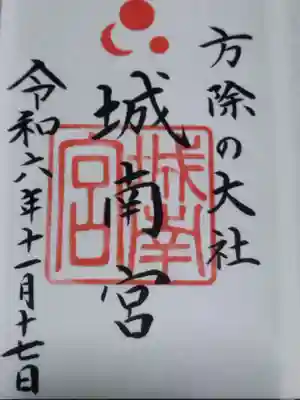 方除の大社
城南宮
城南宮
令和六年十一月十七日